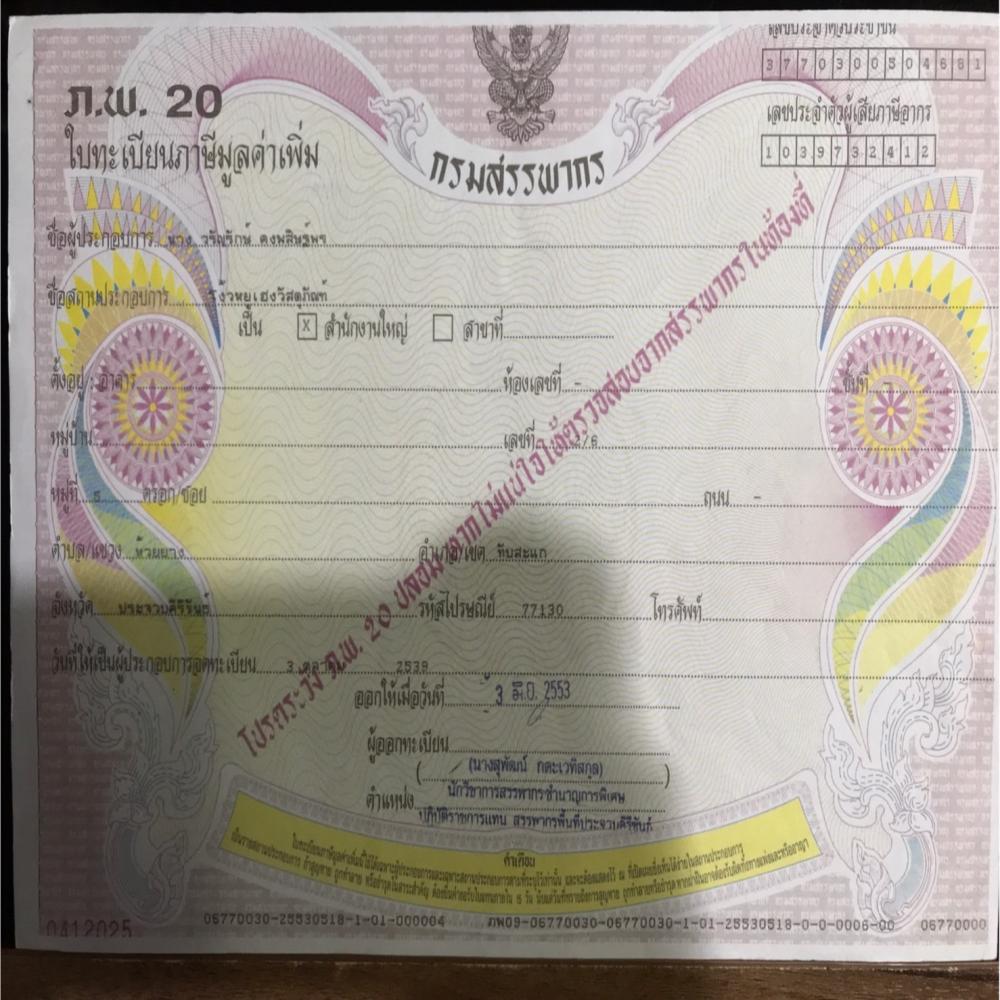 เลขประจำตัวประชาชน
3770300504681
ภ.พ. 20
เลขประจำตัวผู้เสียภาษีอากร
1039732412
ใบทะเบียนภาษีมูลค่าเพิ่ม
กรมสรรพากร
ชื่อผู้ประกอบการ นาง
ชื่อสถานประกอบการ
เป็น X สำนักงานใหญ่ สาขาที่
ตั้งอยู่ : อาคาร ห้องเลขที่ - ชั้นที่ -
หมู่บ้าน เลขที่ 2/6
หมู่ที่ 5 ตรอก/ซอย ถนน -
ตำบล/แขวง ห้วยยาง อำเภอ/เขต ทับสะแก
จังหวัด ประจวบคีรีขันธ์ รหัสไปรษณีย์ 77130 โทรศัพท์
วันที่ให้เป็นผู้ประกอบการจดทะเบียน 3 ตุลาคม 2539
ออกให้เมื่อวันที่ 3 มิ.ย. 2553
ผู้ออกทะเบียน
(นางสุพัฒน์ กตะเวทิสกุล)
ตำแหน่ง นักวิชาการสรรพากรชำนาญการพิเศษ
ปฏิบัติราชการแทน สรรพากรพื้นที่ประจวบคีรีขันธ์
โปรดระวัง ภ.พ. 20 ปลอม หากไม่แน่ใจให้ตรวจสอบจากสรรพากรในท้องที่
คำเตือน
0412025
06770030-25530518-1-01-000004
ภพ09-06770030-06770030-1-01-25530518-0-0-0006-00
06770000